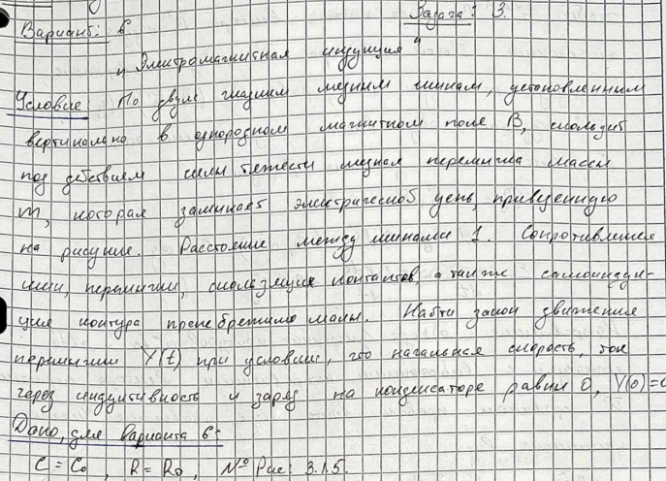 Задача: 3.
Вариант: 6.
"Электромагнитная индукция"
Условие: По двум гладким медным шинам, установленным
вертикально в однородном магнитном поле B, скользит
под действием силы тяжести медная перемычка массы
m, которая замыкает электрическоб цепь, приведенную
на рисунке. Расстояние между шинами l. Сопротивления
шин, перемычки, скользящих контактов, а также самоиндук-
ция контура пренебрежимо малы. Найти закон движения
перемычки Y(t) при условии, что начальная скорость, ток
через индуктивность и заряд на конденсаторе равны 0, Y(0)=0
Дано, для варианта 6:
C = C₀, R = R₀, № Рис: 3.1.5.